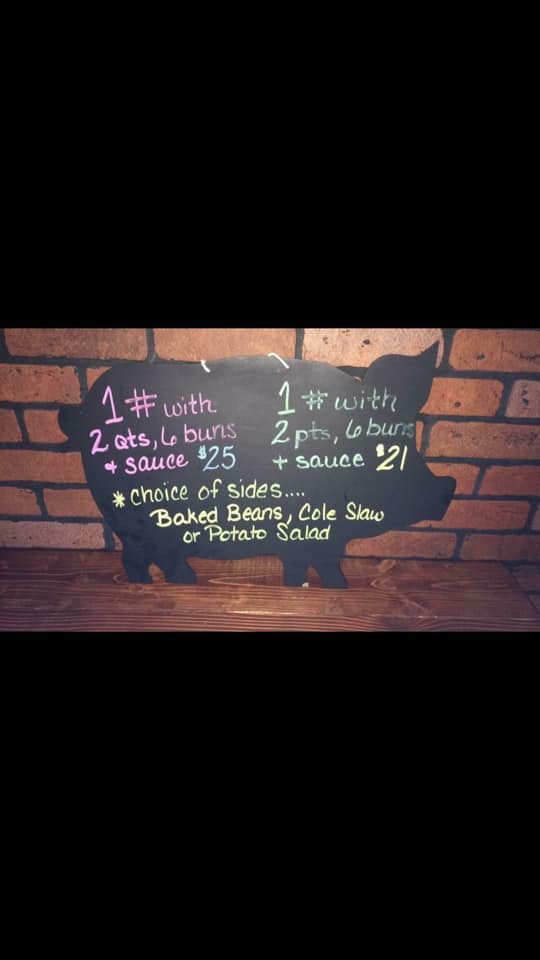 1# with
2 qts, 6 buns
+ sauce $25
1# with
2 pts, 6 buns
+ sauce $21
* choice of sides....
Baked Beans, Cole Slaw
or Potato Salad